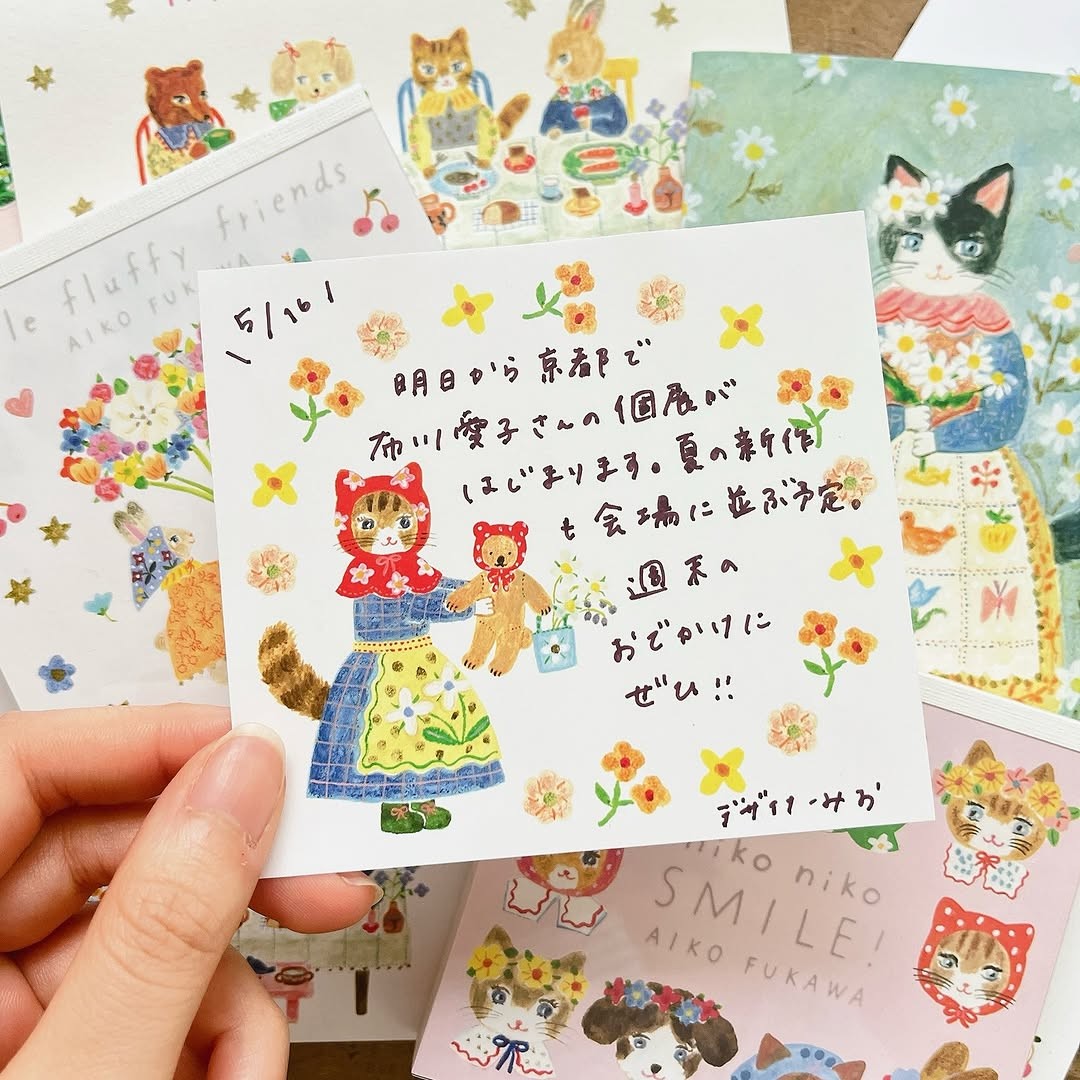 le fluffy friends
AIKO FUKAWA
\5/16/
明日から京都で
布川愛子さんの個展が
はじまります。夏の新作
も会場に並ぶ予定。
週末の
おでかけに
ぜひ!!
デザイナーみお
niko niko
SMILE!
AIKO FUKAWA